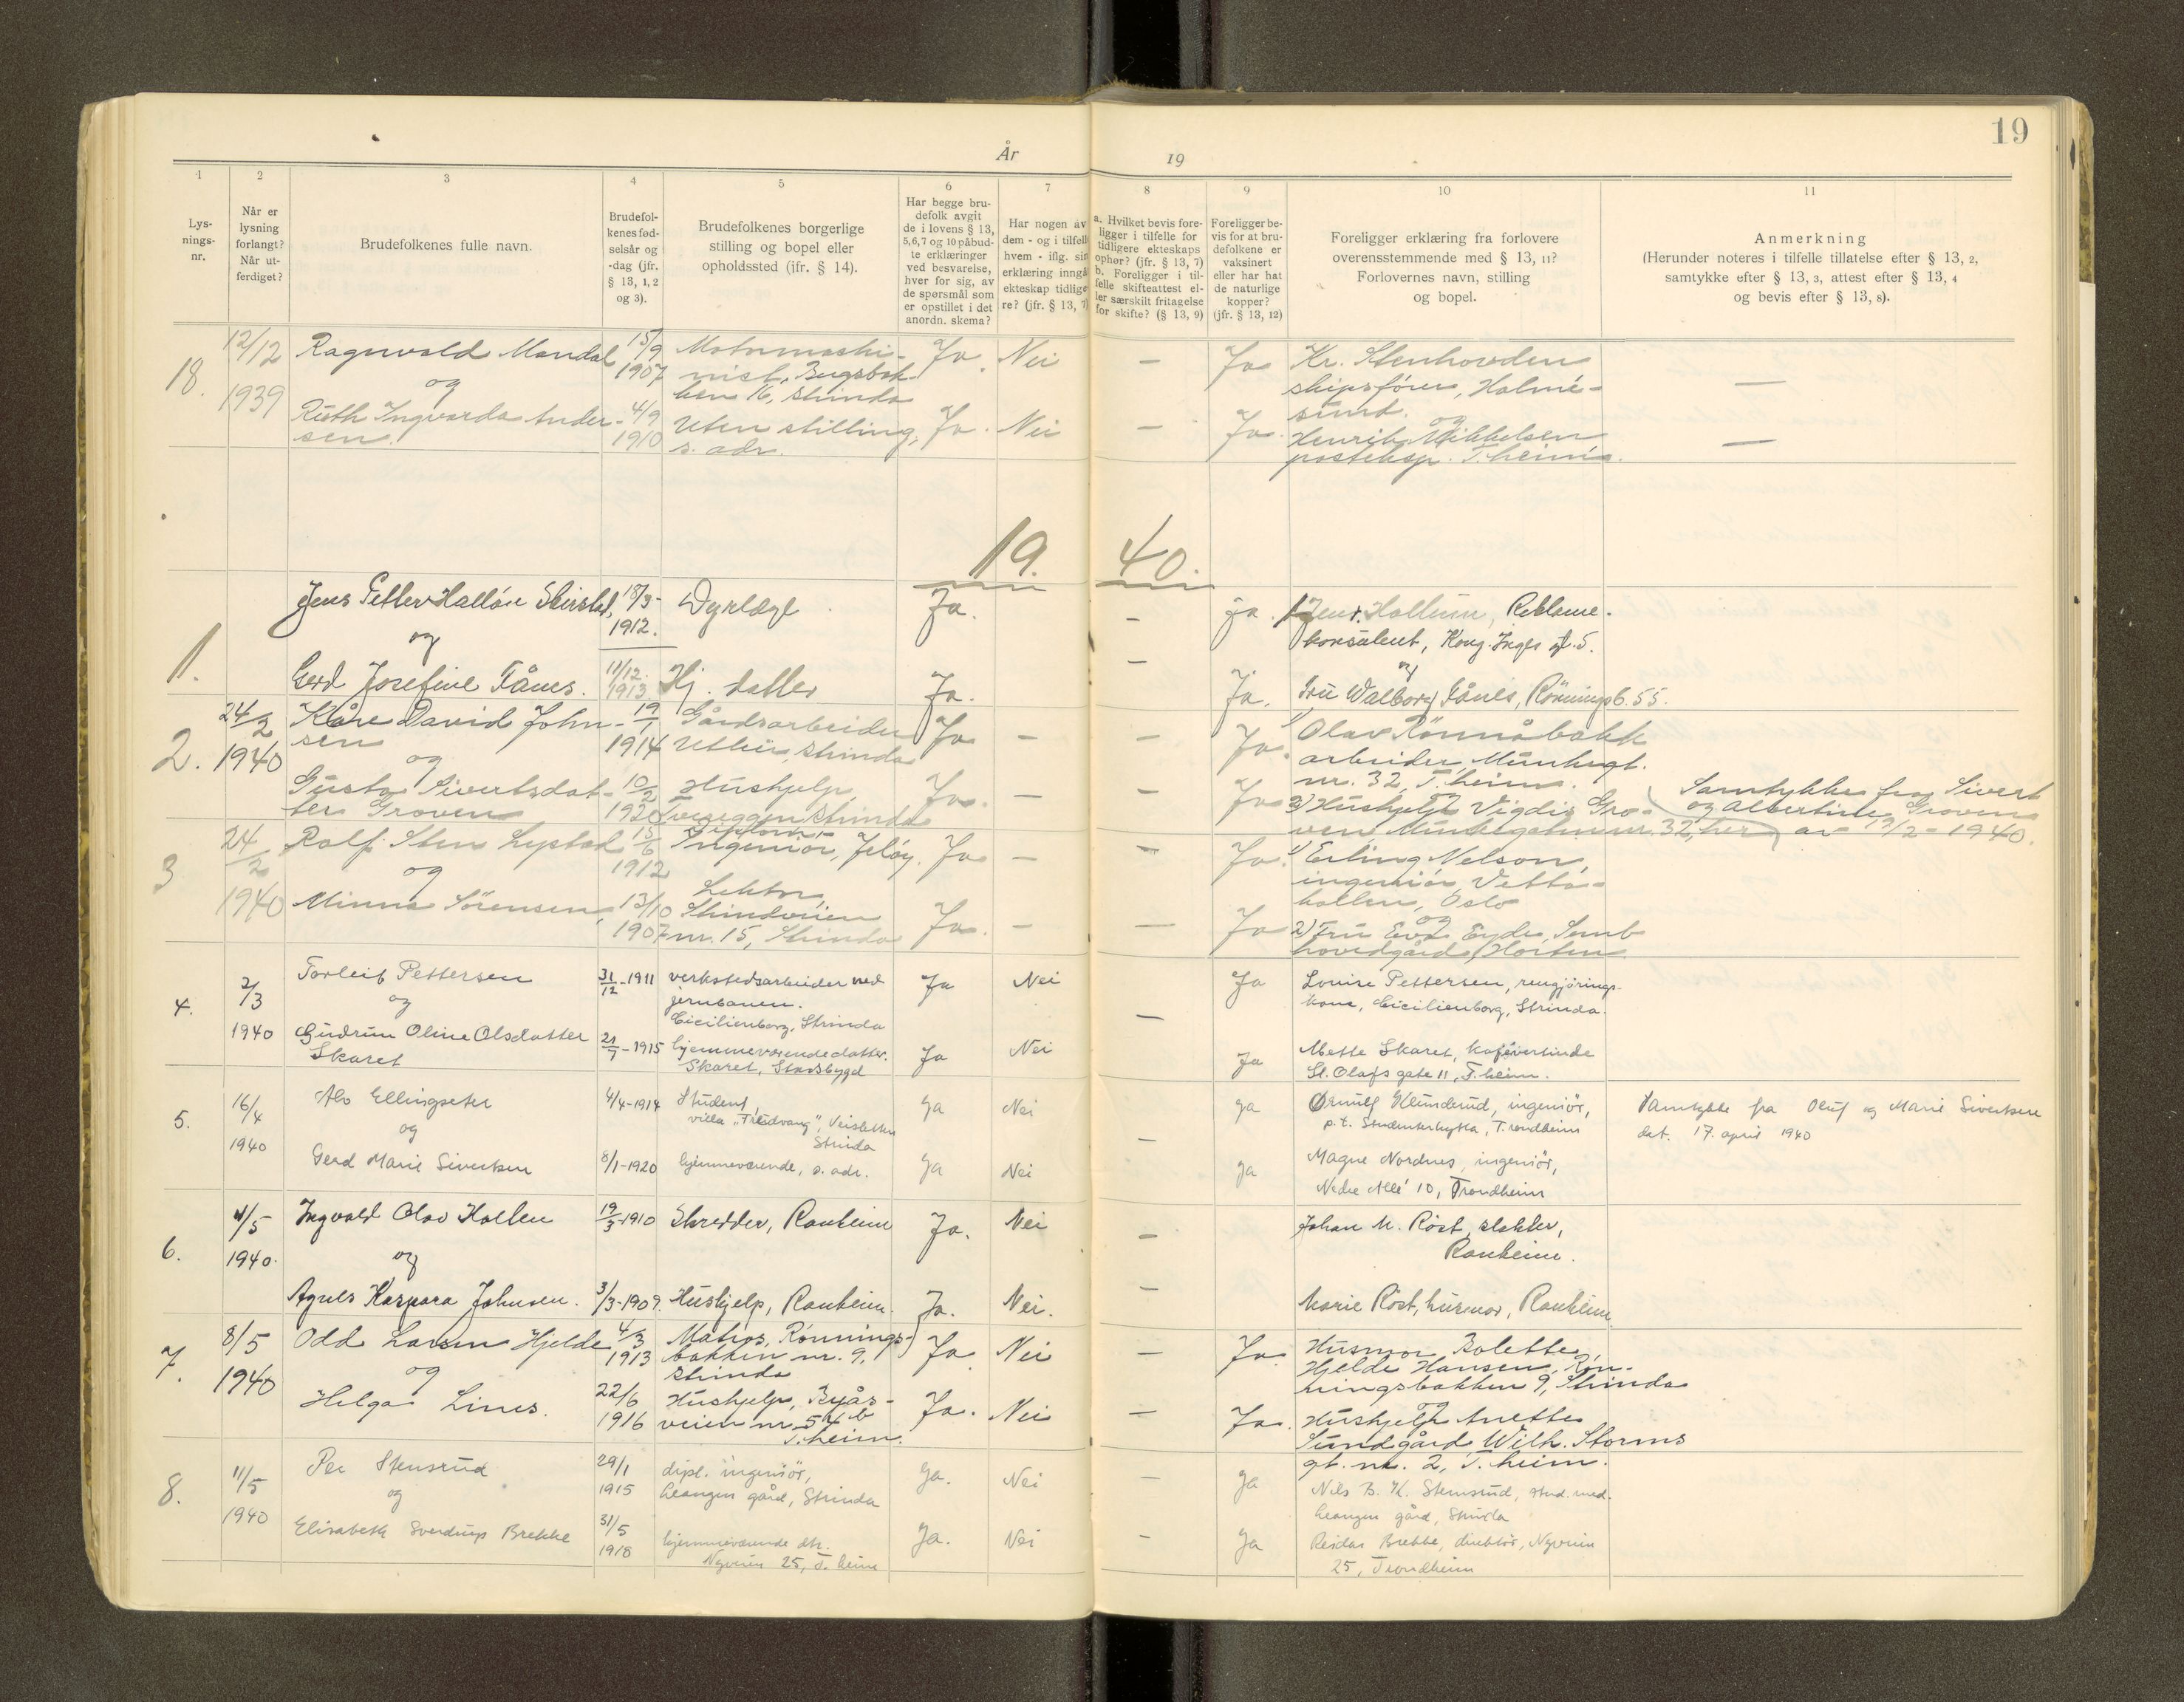 19
År 19
1
Lys-
nings-
nr.
2
Når er
lysning
forlangt?
Når ut-
ferdiget?
3
Brudefolkenes fulle navn.
4
Brudefol-
kenes fød-
selsår og
-dag (jfr.
§ 13, 1, 2
og 3).
5
Brudefolkenes borgerlige
stilling og bopel eller
opholdssted (ifr. § 14).
6
Har begge bru-
defolk avgit
de i lovens § 13,
5,6,7 og 10 påbud-
te erklæringer
ved besvarelse,
hver for sig, av
de spørsmål som
er opstillet i det
anordn. skema?
7
Har nogen av
dem - og i tilfelle
hvem - iflg. sin
erklæring inngå
ekteskap tidlige-
re? (jfr. § 13, 7)
8
a. Hvilket bevis fore-
ligger i tilfelle for
tidligere ekteskaps
ophør? (jfr. § 13, 7)
b. Foreligger i til-
felle skifteattest el-
ler særskilt fritagelse
for skifte? (§ 13, 9)
9
Foreligger be-
vis for at bru-
defolkene er
vaksinert
eller har hat
de naturlige
kopper?
(jfr. § 13, 12)
10
Foreligger erklæring fra forlovere
overensstemmende med § 13, 11?
Forlovernes navn, stilling
og bopel.
11
Anmerkning
(Herunder noteres i tilfelle tillatelse efter § 13, 2,
samtykke efter § 13, 3, attest efter § 13, 4
og bevis efter § 13, 8).
18.
12/12
1939
Ragnvald Mandal
og
Ruth Ingvarda Ander-
sen.
15/9
1907
4/9
1910
Motormaski-
nist, Bugsbak-
ken 16, Strinda
Uten stilling,
s. adr.
Ja. Nei — Ja
Ja. Nei — Ja.
Kr. Stenhovden
skipsfører, Holme-
sund.
og
Henrik Mikkelsen
posteksp. T.heim.
—
—
19 40.
1.
Jens Petter Halløse Skirstad,
og
Gerd Josefine Fånes.
18/3-
1912.
11/12.
1913
Dyrlæge
Hj. datter
Ja. — Ja.
Ja. — Ja.
Hallum, Reklame-
konsulent, Kong Inges gt. 5.
og
Fru Walborg Fånes, Rönningsb. 55.
2.
24/2
1940
Kåre David John-
sen
og
Gusta Sivertsdat-
ter Groven
19/1
1914
10/2
1920
Gårdsarbeider
Strinda
Hushjelp
Strinda
Ja — — Ja.
Ja. — — Ja
1) Olav Rönnåbakk
arbeider, Munkegt.
nr. 32, T.heim.
og
2) Hushjelp Vigdis Gro-
ven, Munkegaten nr. 32, her
Samtykke fra Sivert
og Albertine Groven
av 19/2-1940.
3
24/2
1940
Rolf Sten Lystad
og
Minna Sörensen,
15/6
1912
13/10
1907
Diplom-
Ingeniör, Jelöy.
Lektor,
Strindveien
nr. 15, Strinda
Ja — — Ja.
Ja. — — Ja
1) Erling Nelson,
ingeniör, Vetta-
kollen, Oslo
og
2) Fru Eva Eyde, Semb
hovedgård, Horten
4.
2/3
1940
Torleif Pettersen
og
Gudrun Oline Olsdatter
Skaret
31/12-1911
21/7-1915
verkstedsarbeider ved
jernbanen.
Cicilienborg, Strinda
hjemmeværende datter.
Skaret, Stadsbygd
Ja Nei — Ja
Ja Nei Ja
Louise Pettersen, rengjørings-
kone, Cicilienborg, Strinda.
Mette Skaret, kafévertinde
St. Olafs gate 11, T.heim.
5.
16/4
1940
Alv Ellingseter
og
Gerd Marie Sivertsen
4/4-1914
8/1-1920
Student,
Strinda
hjemmeværende, s. adr.
Ja Nei — Ja
Ja Nei Ja
Ørnulf Klunderud, ingeniör,
p.t. Studenterhytta, Trondheim
Magne Nordnes, ingeniör,
Nedre Allé 10, Trondheim
Samtykke fra Oluf og Marie Sivertsen
dat. 17. april 1940
6.
4/5
1940.
Ingvald Olav Hallen
og
Agnes Kaspara Johnsen.
19/3-1910
3/3-1909.
Skredder, Ranheim
Hushjelp, Ranheim.
Ja. Nei —
Ja. Nei. —
Johan M. Röst, slakter,
Ranheim.
Marie Röst, husmor, Ranheim
7.
8/5
1940
Odd Larsen Hjelde
og
Helga Lines.
4/3
1913
22/6
1916
Matros, Rönnings-
bakken nr. 9,
Strinda
Hushjelp, Byås-
veien nr. 54 b
T.heim.
Ja Nei — Ja
Ja. Nei — Ja.
Husmor Bolette
Hjelde Hansen, Rön-
ningsbakken 9, Strinda
og
Hushjelp Anette
Sundgård Wilh. Storms
gt. nr. 2, T.heim.
8.
11/5
1940
Per Stensrud
og
Elisabeth Sverdrup Brekke
29/1
1915
31/5
1918
dipl. ingeniör,
Leangen gård, Strinda
hjemmeværende dtr.
Nyveien 25, T.heim
Ja. Nei — Ja
Ja. Nei — Ja
Nils B. K. Stensrud, stud. med.
Leangen gård, Strinda
Reidar Brekke, direktör, Nyveien
25, Trondheim